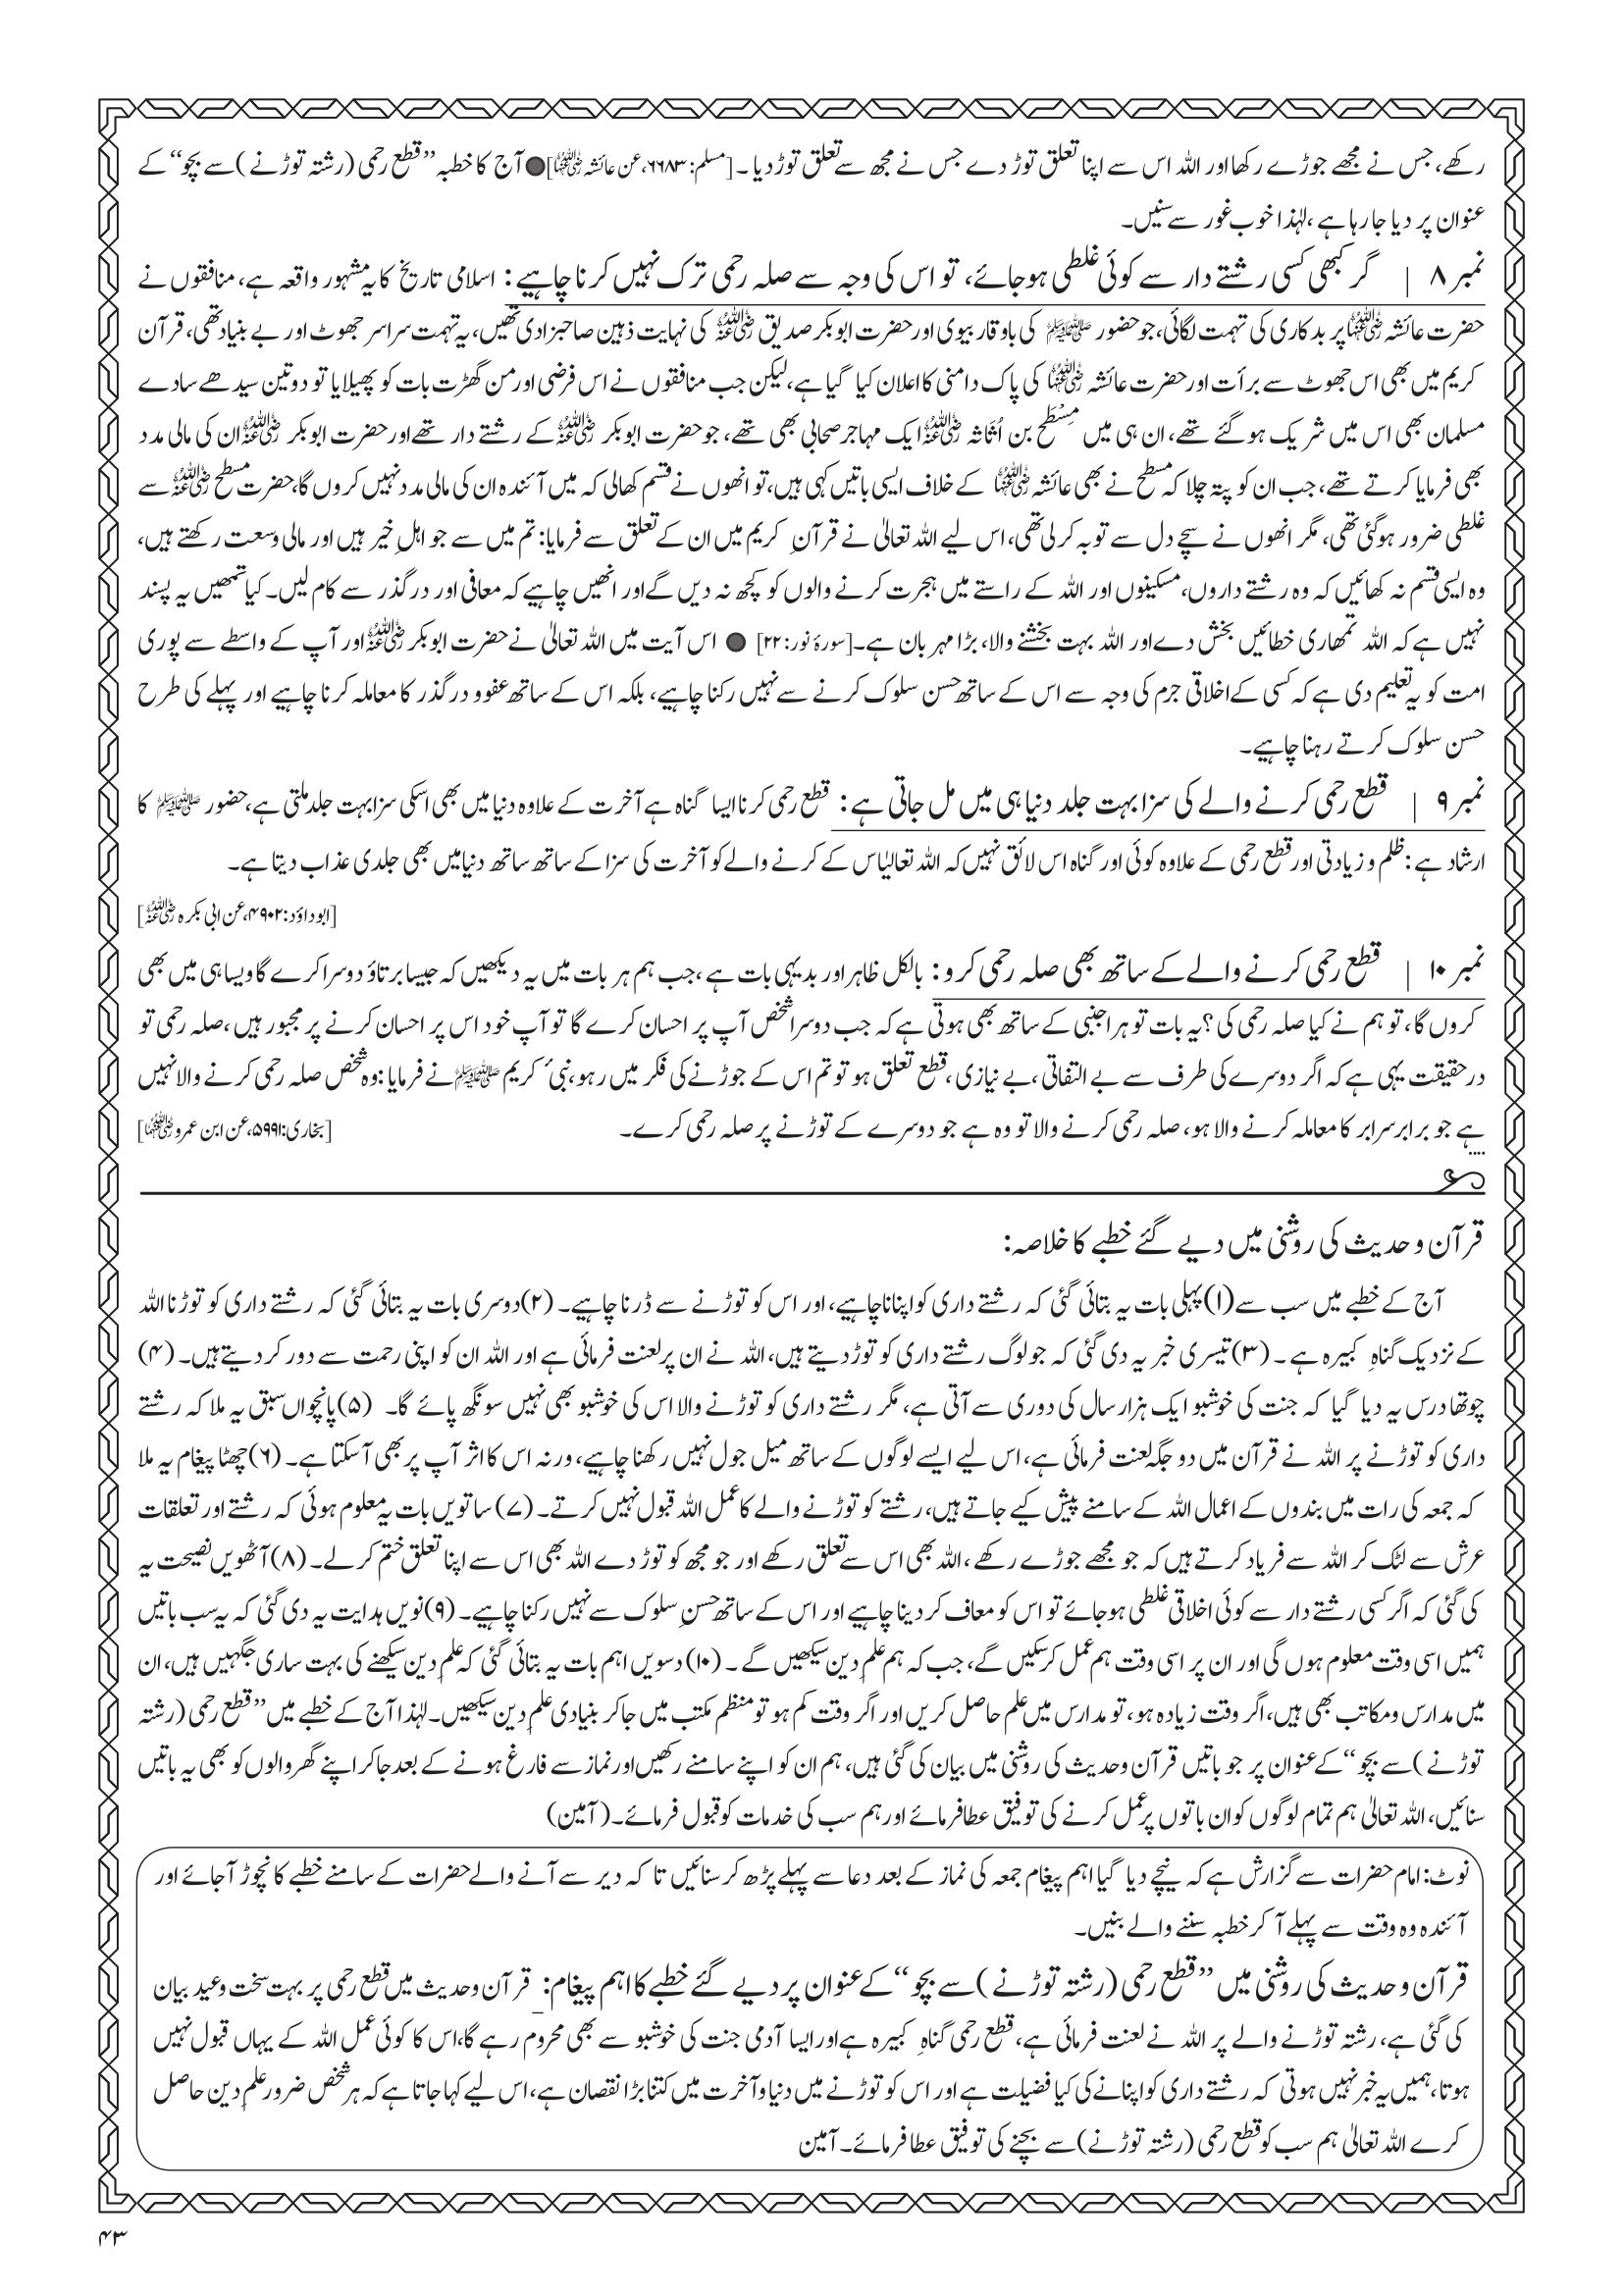 رکھے، جس نے مجھے جوڑے رکھا اور اللہ اس سے اپنا تعلق توڑ دے جس نے مجھ سے تعلق توڑ دیا۔ [مسلم: ۶۶۸۳، عن عائشہ رضی اللہ عنہا] ● آج کا خطبہ ”قطع رحمی (رشتہ توڑنے) سے بچو“ کے
عنوان پر دیا جا رہا ہے، لہٰذا خوب غور سے سنیں۔
نمبر ۸ | گر کبھی کسی رشتے دار سے کوئی غلطی ہو جائے، تو اس کی وجہ سے صلہ رحمی ترک نہیں کرنا چاہیے: اسلامی تاریخ کا یہ مشہور واقعہ ہے، منافقوں نے
حضرت عائشہ رضی اللہ عنہا پر بدکاری کی تہمت لگائی، جو حضور ﷺ کی باوقار بیوی اور حضرت ابوبکر صدیق رضی اللہ عنہ کی نہایت ذہین صاحبزادی تھیں، یہ تہمت سراسر جھوٹ اور بے بنیاد تھی، قرآن
کریم میں بھی اس جھوٹ سے برأت اور حضرت عائشہ رضی اللہ عنہا کی پاک دامنی کا اعلان کیا گیا ہے، لیکن جب منافقوں نے اس فرضی اور من گھڑت بات کو پھیلایا تو دو تین سیدھے سادے
مسلمان بھی اس میں شریک ہو گئے تھے، ان ہی میں مِسْطَح بن اُثَاثہ رضی اللہ عنہ ایک مہاجر صحابی بھی تھے، جو حضرت ابوبکر رضی اللہ عنہ کے رشتے دار تھے اور حضرت ابوبکر رضی اللہ عنہ ان کی مالی مدد
بھی فرمایا کرتے تھے، جب ان کو پتہ چلا کہ مسطح نے بھی عائشہ رضی اللہ عنہا کے خلاف ایسی باتیں کہی ہیں، تو انھوں نے قسم کھالی کہ میں آئندہ ان کی مالی مدد نہیں کروں گا، حضرت مسطح رضی اللہ عنہ سے
غلطی ضرور ہو گئی تھی، مگر انھوں نے سچے دل سے توبہ کر لی تھی، اس لیے اللہ تعالیٰ نے قرآنِ کریم میں ان کے تعلق سے فرمایا: تم میں سے جو اہلِ خیر ہیں اور مالی وسعت رکھتے ہیں،
وہ ایسی قسم نہ کھائیں کہ وہ رشتے داروں، مسکینوں اور اللہ کے راستے میں ہجرت کرنے والوں کو کچھ نہ دیں گے اور انھیں چاہیے کہ معافی اور درگذر سے کام لیں۔ کیا تمھیں یہ پسند
نہیں ہے کہ اللہ تمھاری خطائیں بخش دے اور اللہ بہت بخشنے والا، بڑا مہربان ہے۔ [سورۂ نور: ۲۲] ● اس آیت میں اللہ تعالیٰ نے حضرت ابوبکر رضی اللہ عنہ اور آپ کے واسطے سے پوری
امت کو یہ تعلیم دی ہے کہ کسی کے اخلاقی جرم کی وجہ سے اس کے ساتھ حسن سلوک کرنے سے نہیں رکنا چاہیے، بلکہ اس کے ساتھ عفو و درگذر کا معاملہ کرنا چاہیے اور پہلے کی طرح
حسن سلوک کرتے رہنا چاہیے۔
نمبر ۹ | قطع رحمی کرنے والے کی سزا بہت جلد دنیا ہی میں مل جاتی ہے: قطع رحمی کرنا ایسا گناہ ہے آخرت کے علاوہ دنیا میں بھی اسکی سزا بہت جلد ملتی ہے، حضور ﷺ کا
ارشاد ہے: ظلم و زیادتی اور قطع رحمی کے علاوہ کوئی اور گناہ اس لائق نہیں کہ اللہ تعالیٰاس کے کرنے والے کو آخرت کی سزا کے ساتھ ساتھ دنیا میں بھی جلدی عذاب دیتا ہے۔
[ابوداؤد: ۴۹۰۲، عن ابی بکرہ رضی اللہ عنہ]
نمبر ۱۰ | قطع رحمی کرنے والے کے ساتھ بھی صلہ رحمی کرو: بالکل ظاہر اور بدیہی بات ہے، جب ہم ہر بات میں یہ دیکھیں کہ جیسا برتاؤ دوسرا کرے گا ویسا ہی میں بھی
کروں گا، تو ہم نے کیا صلہ رحمی کی؟ یہ بات تو ہر اجنبی کے ساتھ بھی ہوتی ہے کہ جب دوسرا شخص آپ پر احسان کرے گا تو آپ خود اس پر احسان کرنے پر مجبور ہیں، صلہ رحمی تو
درحقیقت یہی ہے کہ اگر دوسرے کی طرف سے بے التفاتی، بے نیازی، قطع تعلق ہو تو تم اس کے جوڑنے کی فکر میں رہو، نبیٔ کریم ﷺ نے فرمایا: وہ شخص صلہ رحمی کرنے والا نہیں
ہے جو برابر سرابر کا معاملہ کرنے والا ہو، صلہ رحمی کرنے والا تو وہ ہے جو دوسرے کے توڑنے پر صلہ رحمی کرے۔ [بخاری: ۵۹۹۱، عن ابن عمرو رضی اللہ عنہما]
قرآن و حدیث کی روشنی میں دیے گئے خطبے کا خلاصہ:
آج کے خطبے میں سب سے (۱) پہلی بات یہ بتائی گئی کہ رشتے داری کو اپنانا چاہیے، اور اس کو توڑنے سے ڈرنا چاہیے۔ (۲) دوسری بات یہ بتائی گئی کہ رشتے داری کو توڑنا اللہ
کے نزدیک گناہِ کبیرہ ہے۔ (۳) تیسری خبر یہ دی گئی کہ جو لوگ رشتے داری کو توڑ دیتے ہیں، اللہ نے ان پر لعنت فرمائی ہے اور اللہ ان کو اپنی رحمت سے دور کر دیتے ہیں۔ (۴)
چوتھا درس یہ دیا گیا کہ جنت کی خوشبو ایک ہزار سال کی دوری سے آتی ہے، مگر رشتے داری کو توڑنے والا اس کی خوشبو بھی نہیں سونگھ پائے گا۔ (۵) پانچواں سبق یہ ملا کہ رشتے
داری کو توڑنے پر اللہ نے قرآن میں دو جگہ لعنت فرمائی ہے، اس لیے ایسے لوگوں کے ساتھ میل جول نہیں رکھنا چاہیے، ورنہ اس کا اثر آپ پر بھی آسکتا ہے۔ (۶) چھٹا پیغام یہ ملا
کہ جمعہ کی رات میں بندوں کے اعمال اللہ کے سامنے پیش کیے جاتے ہیں، رشتے کو توڑنے والے کا عمل اللہ قبول نہیں کرتے۔ (۷) ساتویں بات یہ معلوم ہوئی کہ رشتے اور تعلقات
عرش سے لٹک کر اللہ سے فریاد کرتے ہیں کہ جو مجھے جوڑے رکھے، اللہ بھی اس سے تعلق رکھے اور جو مجھ کو توڑ دے اللہ بھی اس سے اپنا تعلق ختم کر لے۔ (۸) آٹھویں نصیحت یہ
کی گئی کہ اگر کسی رشتے دار سے کوئی اخلاقی غلطی ہو جائے تو اس کو معاف کر دینا چاہیے اور اس کے ساتھ حسنِ سلوک سے نہیں رکنا چاہیے۔ (۹) نویں ہدایت یہ دی گئی کہ یہ سب باتیں
ہمیں اسی وقت معلوم ہوں گی اور ان پر اسی وقت ہم عمل کر سکیں گے، جب کہ ہم علمِ دین سیکھیں گے۔ (۱۰) دسویں اہم بات یہ بتائی گئی کہ علمِ دین سیکھنے کی بہت ساری جگہیں ہیں، ان
میں مدارس و مکاتب بھی ہیں، اگر وقت زیادہ ہو، تو مدارس میں علم حاصل کریں اور اگر وقت کم ہو تو منظم مکتب میں جا کر بنیادی علمِ دین سیکھیں۔ لہٰذا آج کے خطبے میں ”قطع رحمی (رشتہ
توڑنے) سے بچو“ کے عنوان پر جو باتیں قرآن وحدیث کی روشنی میں بیان کی گئی ہیں، ہم ان کو اپنے سامنے رکھیں اور نماز سے فارغ ہونے کے بعد جا کر اپنے گھر والوں کو بھی یہ باتیں
سنائیں، اللہ تعالیٰ ہم تمام لوگوں کو ان باتوں پر عمل کرنے کی توفیق عطا فرمائے اور ہم سب کی خدمات کو قبول فرمائے۔ (آمین)
نوٹ: امام حضرات سے گزارش ہے کہ نیچے دیا گیا اہم پیغام جمعہ کی نماز کے بعد دعا سے پہلے پڑھ کر سنائیں تا کہ دیر سے آنے والے حضرات کے سامنے خطبے کا نچوڑ آجائے اور
آئندہ وہ وقت سے پہلے آ کر خطبہ سننے والے بنیں۔
قرآن وحدیث کی روشنی میں ”قطع رحمی (رشتہ توڑنے) سے بچو“ کے عنوان پر دیے گئے خطبے کا اہم پیغام: قرآن وحدیث میں قطع رحمی پر بہت سخت وعید بیان
کی گئی ہے، رشتہ توڑنے والے پر اللہ نے لعنت فرمائی ہے، قطع رحمی گناہِ کبیرہ ہے اور ایسا آدمی جنت کی خوشبو سے بھی محروم رہے گا، اس کا کوئی عمل اللہ کے یہاں قبول نہیں
ہوتا، ہمیں یہ خبر نہیں ہوتی کہ رشتے داری کو اپنانے کی کیا فضیلت ہے اور اس کو توڑنے میں دنیا و آخرت میں کتنا بڑا نقصان ہے، اس لیے کہا جاتا ہے کہ ہر شخص ضرور علمِ دین حاصل
کرے اللہ تعالیٰ ہم سب کو قطع رحمی (رشتہ توڑنے) سے بچنے کی توفیق عطا فرمائے۔ آمین
۴۳